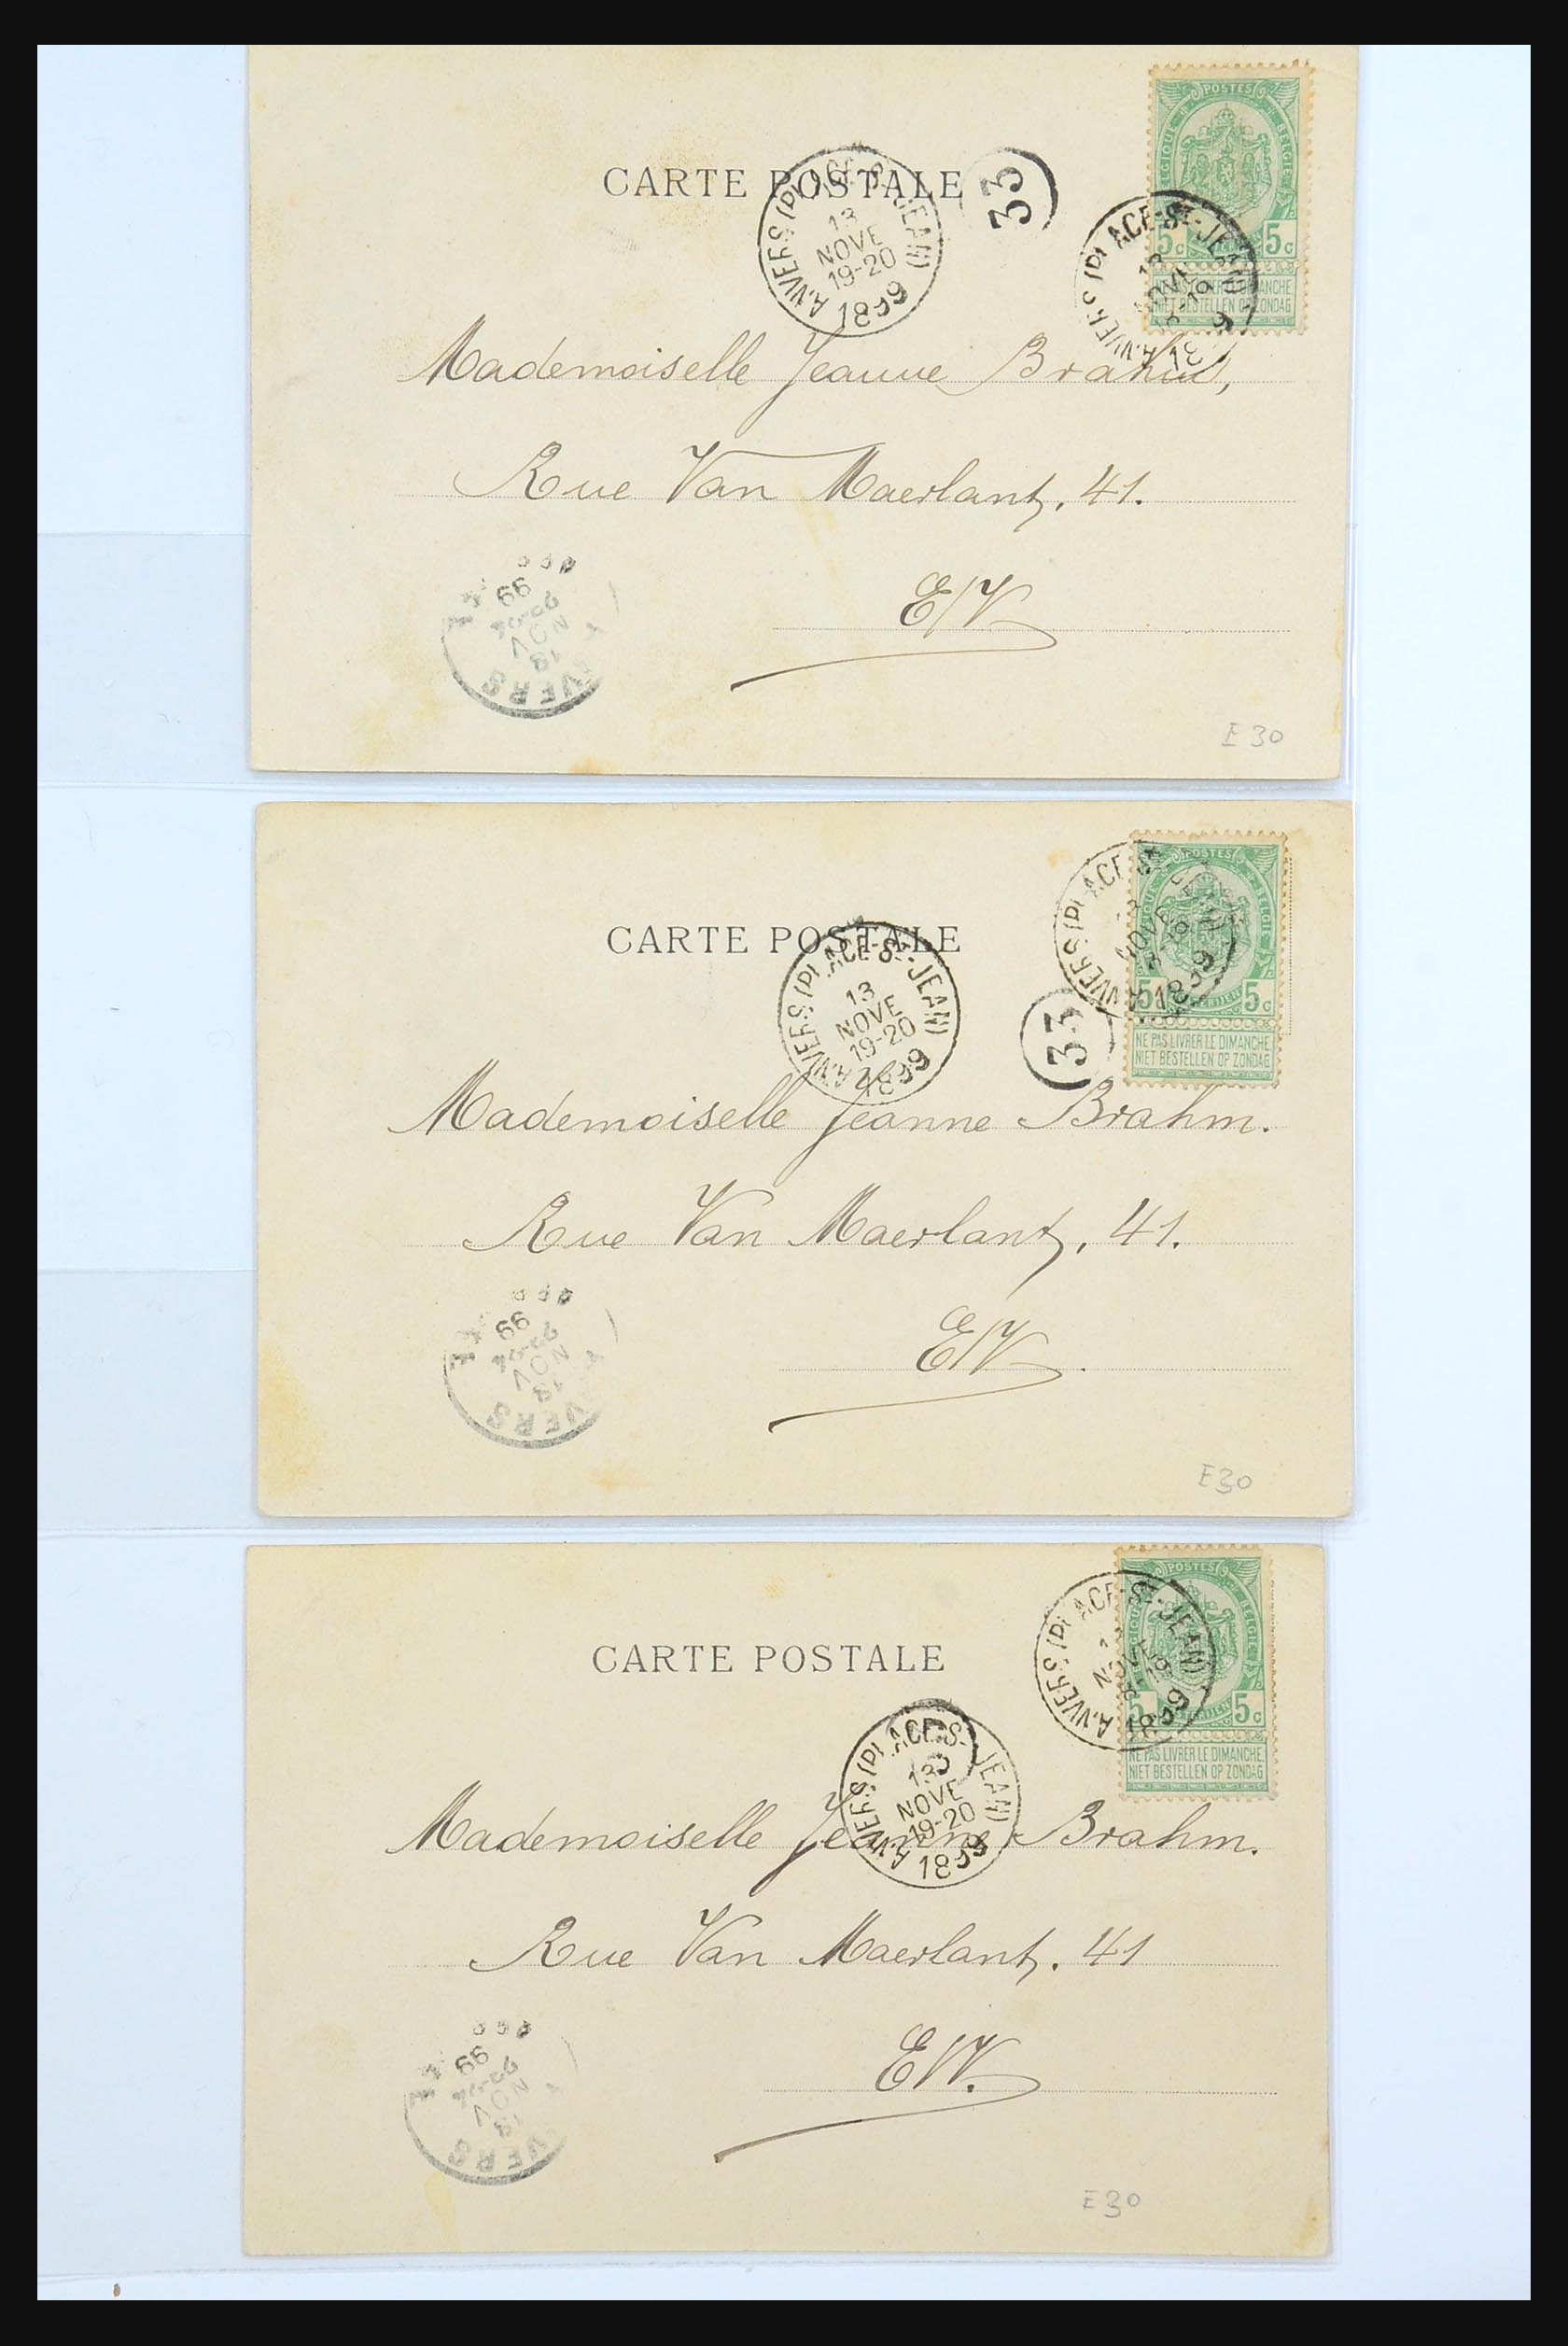 POSTES
BELGIQUE BELGIE
CARTE POSTALE
ANVERS (PLACE-St-JEAN)
13
NOVE
19-20
1899
33
ANVERS (PLACE-St-JEAN)
5c 5c
NIET BESTELLEN OP ZONDAG
Mademoiselle Jeanne Brahm,
Rue Van Maerlant, 41.
E/V
99
NOV
13
E30
POSTES
BELGIE
5c 5c
NE PAS LIVRER LE DIMANCHE
NIET BESTELLEN OP ZONDAG
ANVERS (PLACE St
NOVE
1899
CARTE POSTALE
ANVERS (PLACE-St-JEAN)
13
NOVE
19-20
1899
33
Mademoiselle Jeanne Brahm.
Rue Van Maerlant, 41.
E/V.
99
NOV
13
E30
POSTES
BELGIE
5 5c
NE PAS LIVRER LE DIMANCHE
NIET BESTELLEN OP ZONDAG
ANVERS (PLACE-St-JEAN)
NOVE
1899
CARTE POSTALE
ANVERS (PLACE-St-JEAN)
13
NOVE
19-20
1899
Mademoiselle Jeanne Brahm.
Rue Van Maerlant. 41
E/V.
99
NOV
13
E30